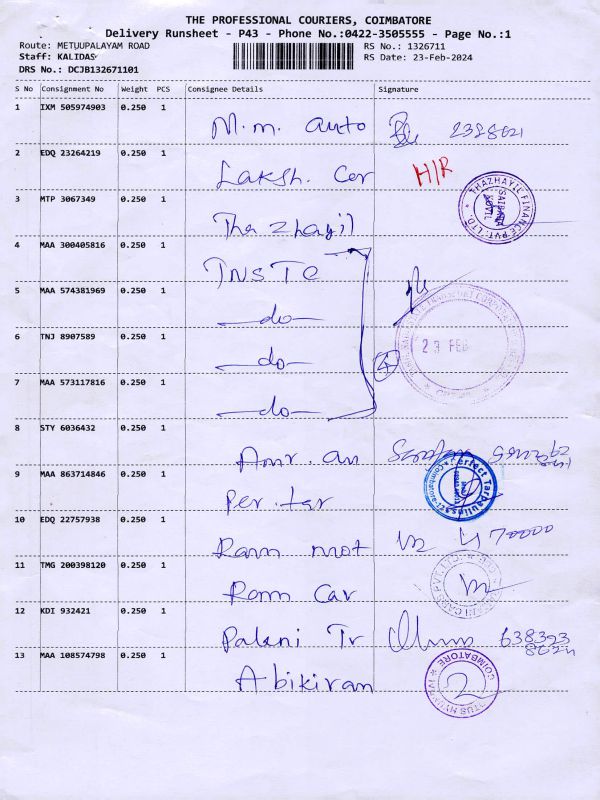 THE PROFESSIONAL COURIERS, COIMBATORE
Delivery Runsheet - P43 - Phone No.:0422-3505555 - Page No.:1
Route: METUUPALAYAM ROAD RS No.: 1326711
Staff: KALIDAS RS Date: 23-Feb-2024
DRS No.: DCJB132671101
S No Consignment No Weight PCS Consignee Details Signature
1 IXM 505974903 0.250 1
M.m. auto 2328021
2 EDQ 23264219 0.250 1
Laksh. Cer H/R
3 MTP 3067349 0.250 1
THAZHAYIL FINANCE PVT. LTD.
Tha zhayil
4 MAA 300405816 0.250 1
TNSTC
5 MAA 574381969 0.250 1
do
23 FEB
6 TNJ 8907589 0.250 1
do
4
7 MAA 573117816 0.250 1
do
8 STY 6036432 0.250 1
Amr. an
9 MAA 863714846 0.250 1
Perfect Tarpaulins
Coimbatore
Per. tar
10 EDQ 22757938 0.250 1
Ram mot 70000
11 TMG 200398120 0.250 1
Ram Car
12 KDI 932421 0.250 1
Palani Tr 638323
8624
13 MAA 108574798 0.250 1
COIMBATORE
Abikiran